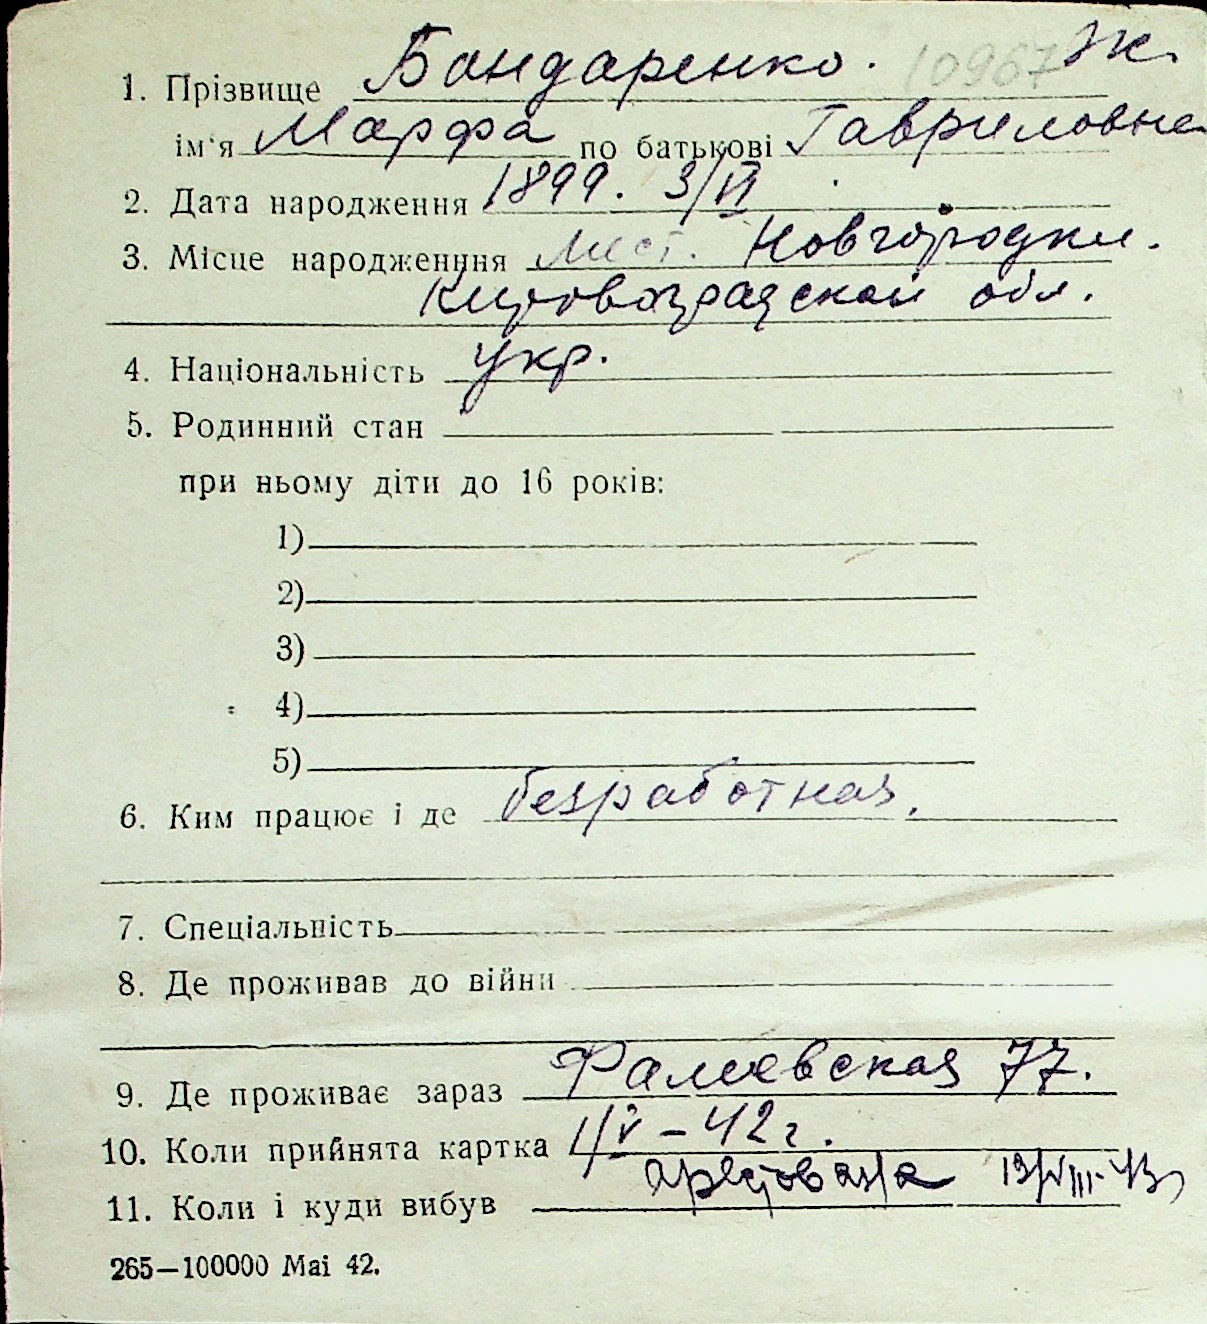 1. Прізвище Бондаренко. 10967 Ж.
ім'я Марфа по батькові Гавриловна
2. Дата народження 1899. 3/VI
3. Місце народженння мест. Новгородки.
Кировоградской обл.
4. Національність укр.
5. Родинний стан
при ньому діти до 16 років:
1)
2)
3)
4)
5)
6. Ким працює і де безработная.
7. Спеціальність
8. Де проживав до війни
9. Де проживає зараз Фалеевская 77.
10. Коли прийнята картка 4/V-42 г.
11. Коли і куди вибув арестована 13/VIII-43
265—100000 Mai 42.